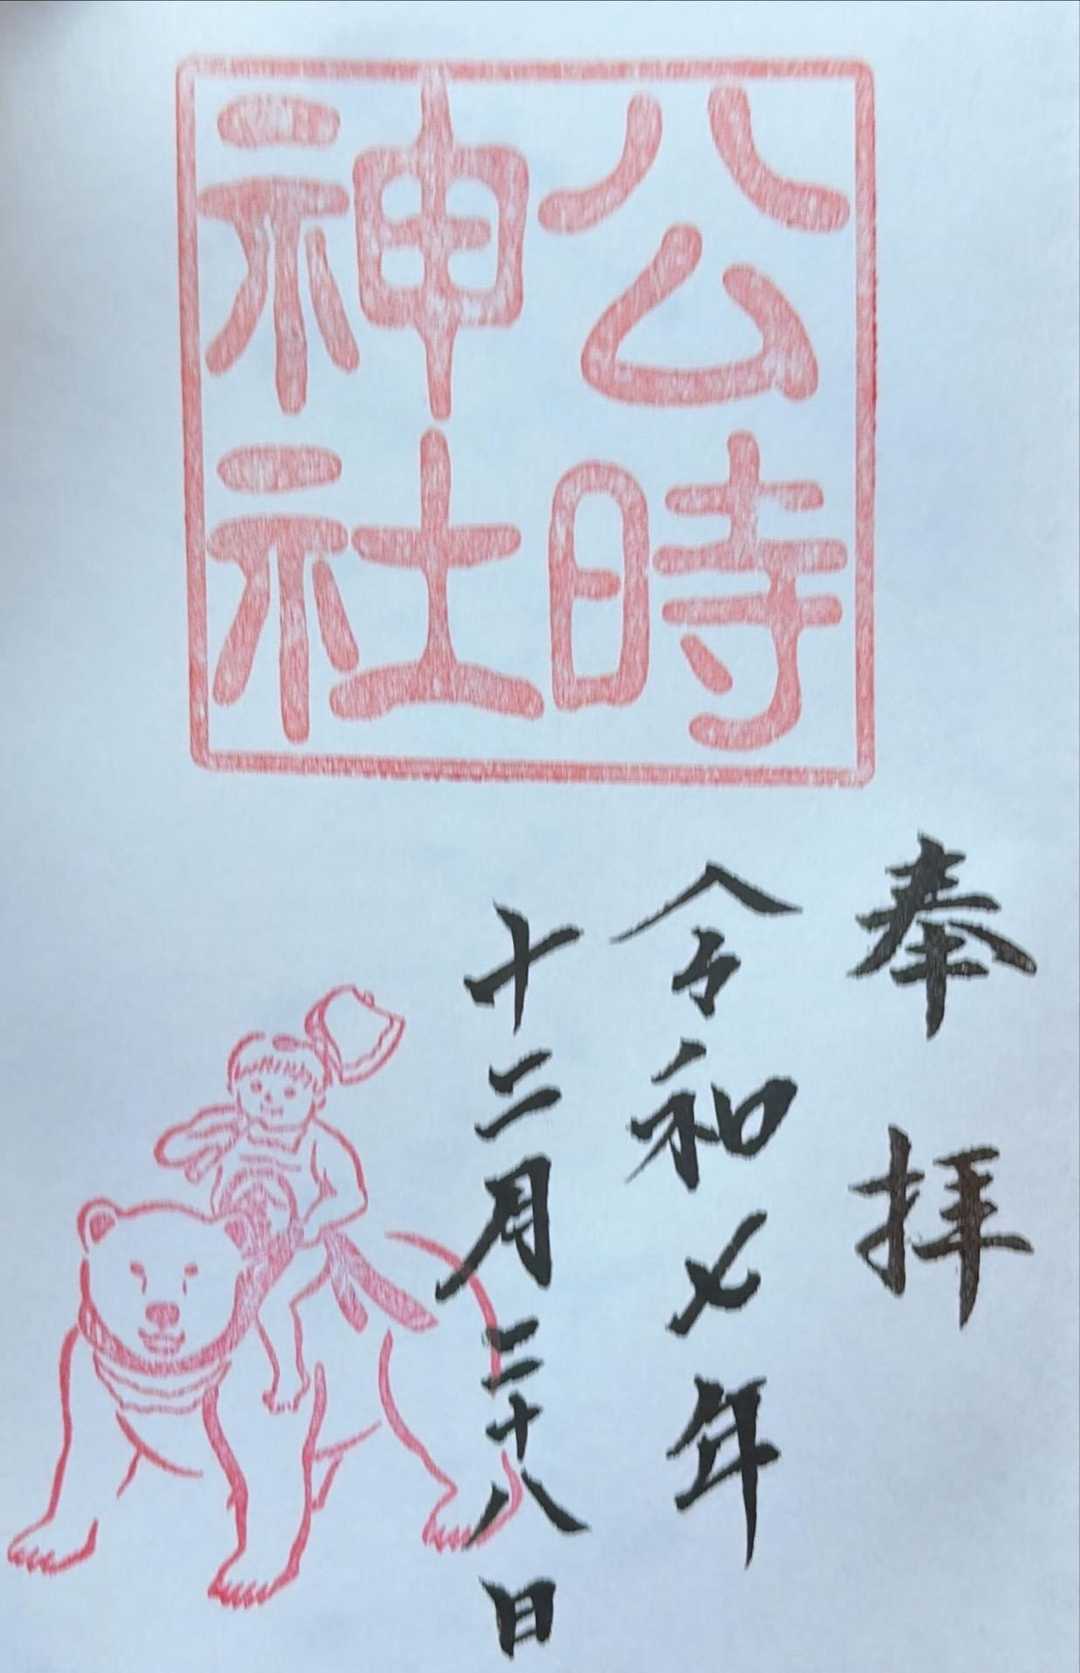 公時
神社
奉拝
令和七年
十二月二十八日